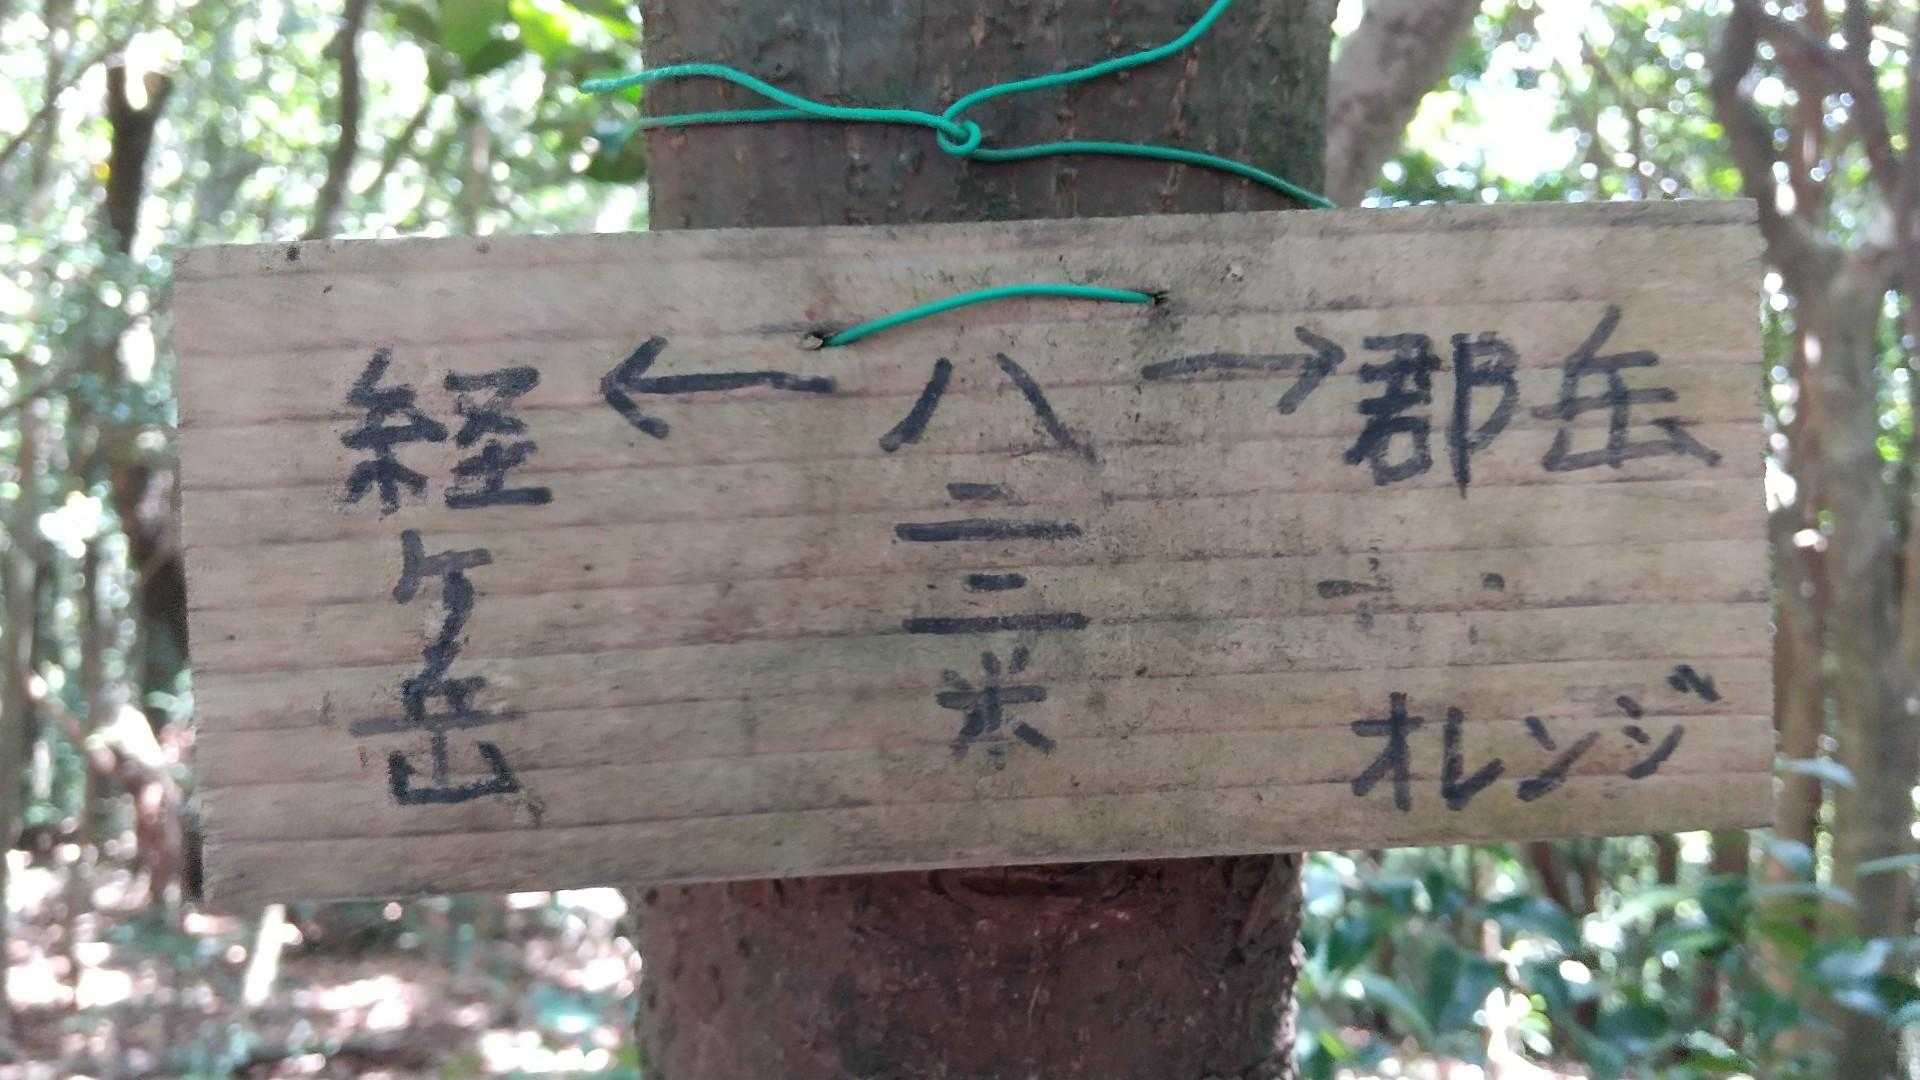 経ヶ岳
←
八二二米
→郡岳
オレンジ